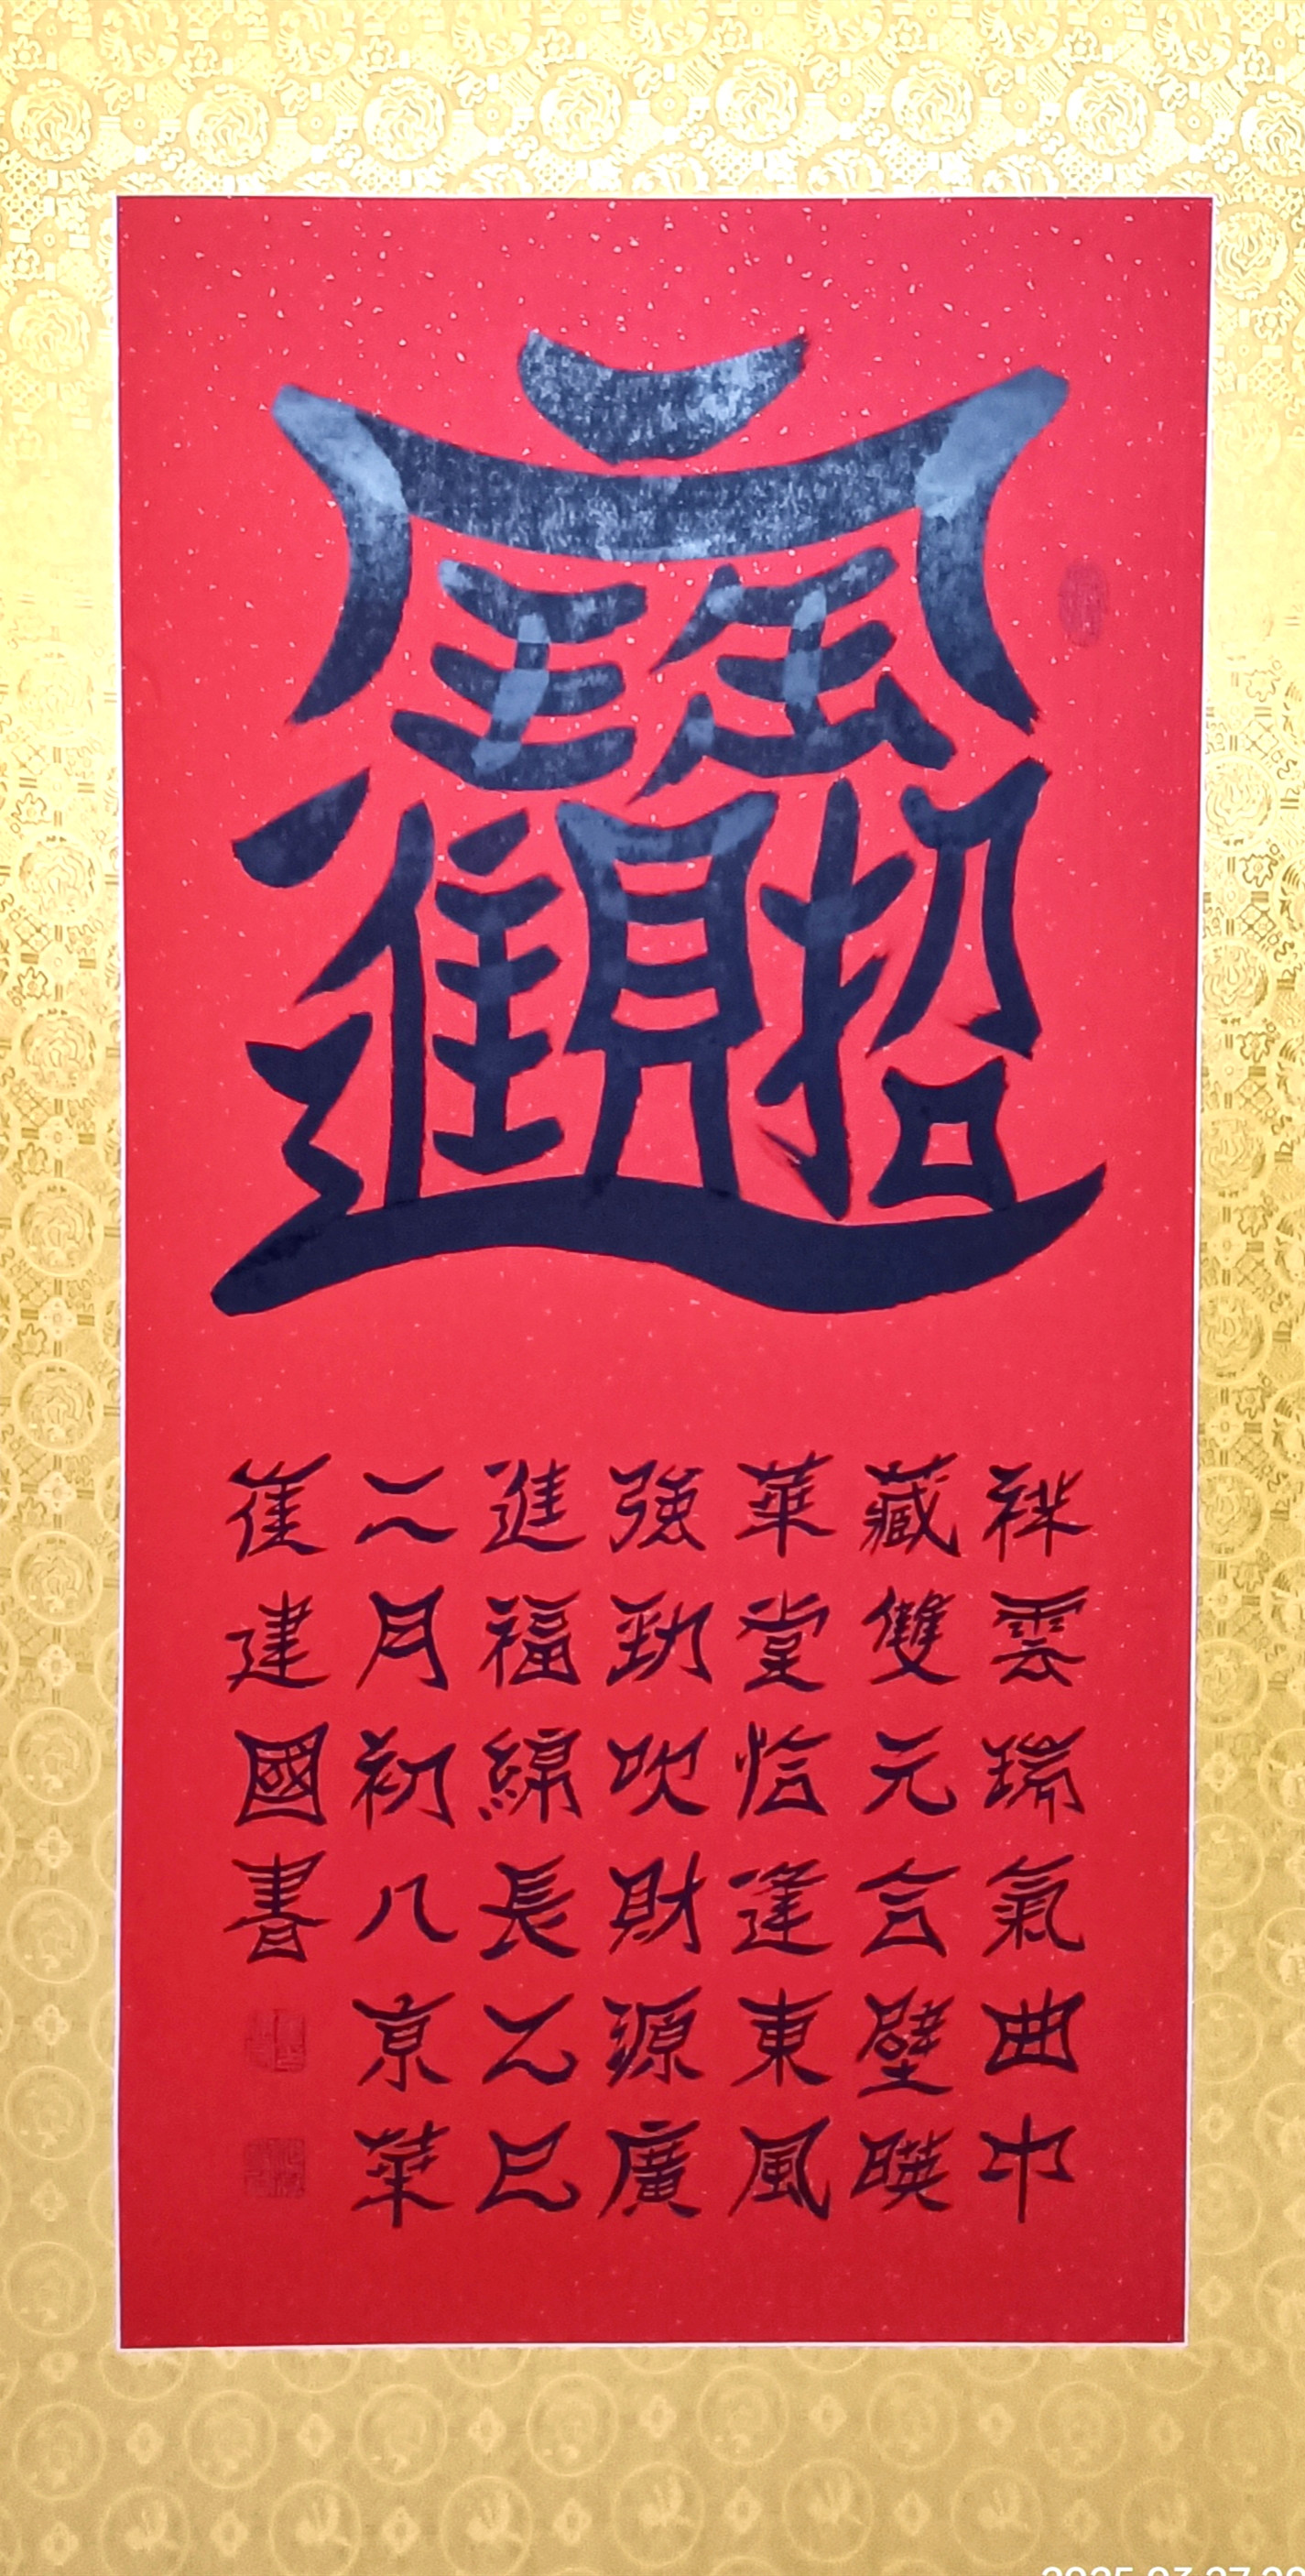 招財進寶
祥雲瑞氣曲中
藏雙元合璧暎
華堂恰逢東風
強勁吹財源廣
進福綿長乙巳
二月初八京華
崔建國書